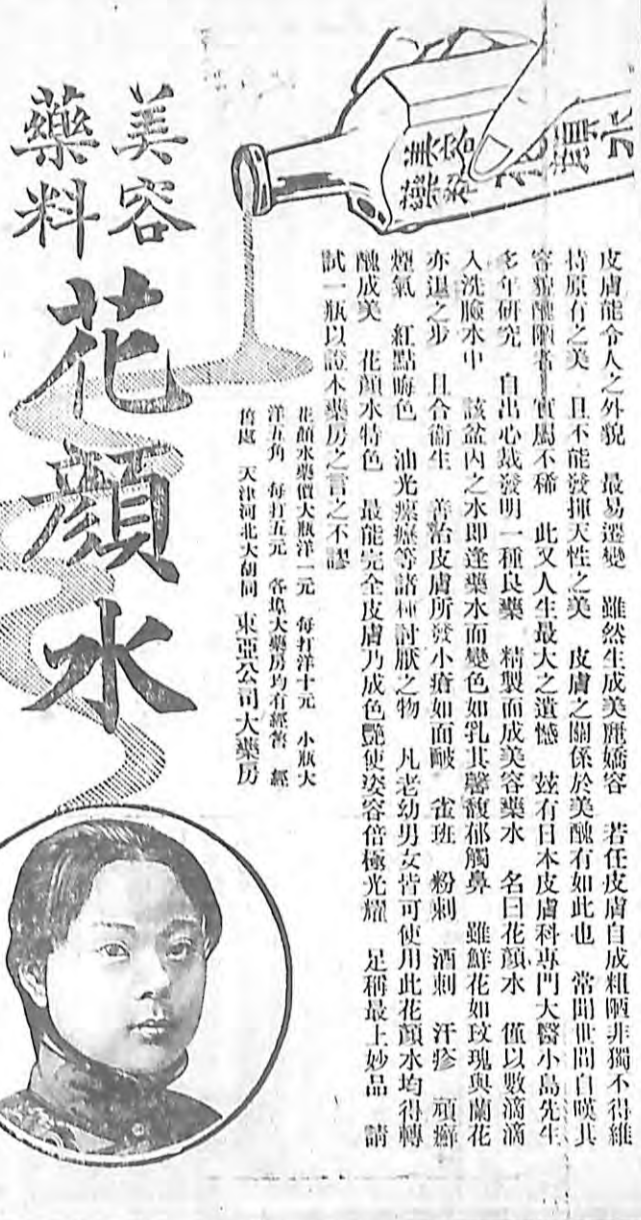 皮膚能令人之外貌 最易遷變 雖然生成美麗嬌容 若任皮膚自成粗陋非獨不得維
持原有之美 且不能發揮天性之美 皮膚之關係於美醜有如此也 常聞世間自嘆其
容貌醜陋者 實屬不稀 此又人生最大之遺憾 茲有日本皮膚科專門大醫小島先生
多年研究 自出心裁發明一種良藥 精製而成美容藥水 名曰花顏水 僅以數滴滴
入洗臉水中 該盆內之水即逢藥水而變色如乳其馨馥郁觸鼻 雖鮮花如玫瑰與蘭花
亦退之步 且合衞生 善治皮膚所發小瘡如面皰 雀班 粉刺 酒刺 汗疹 頑癬
煙氣 紅點晦色 油光 等諸種討厭之物 凡老幼男女皆可使用此花顏水均得轉
醜成美 花顏水特色 最能完全皮膚乃成色艷使姿容倍極光耀 足稱最上妙品 請
試一瓶以證本藥房之言之不謬
花顏水藥價大瓶洋一元 每打洋十元 小瓶大
洋五角 每打五元 各埠大藥房均有經售 經
售處 天津河北大胡同 東亞公司大藥房
美容
藥料
花顏水
美容
藥料
花顏水